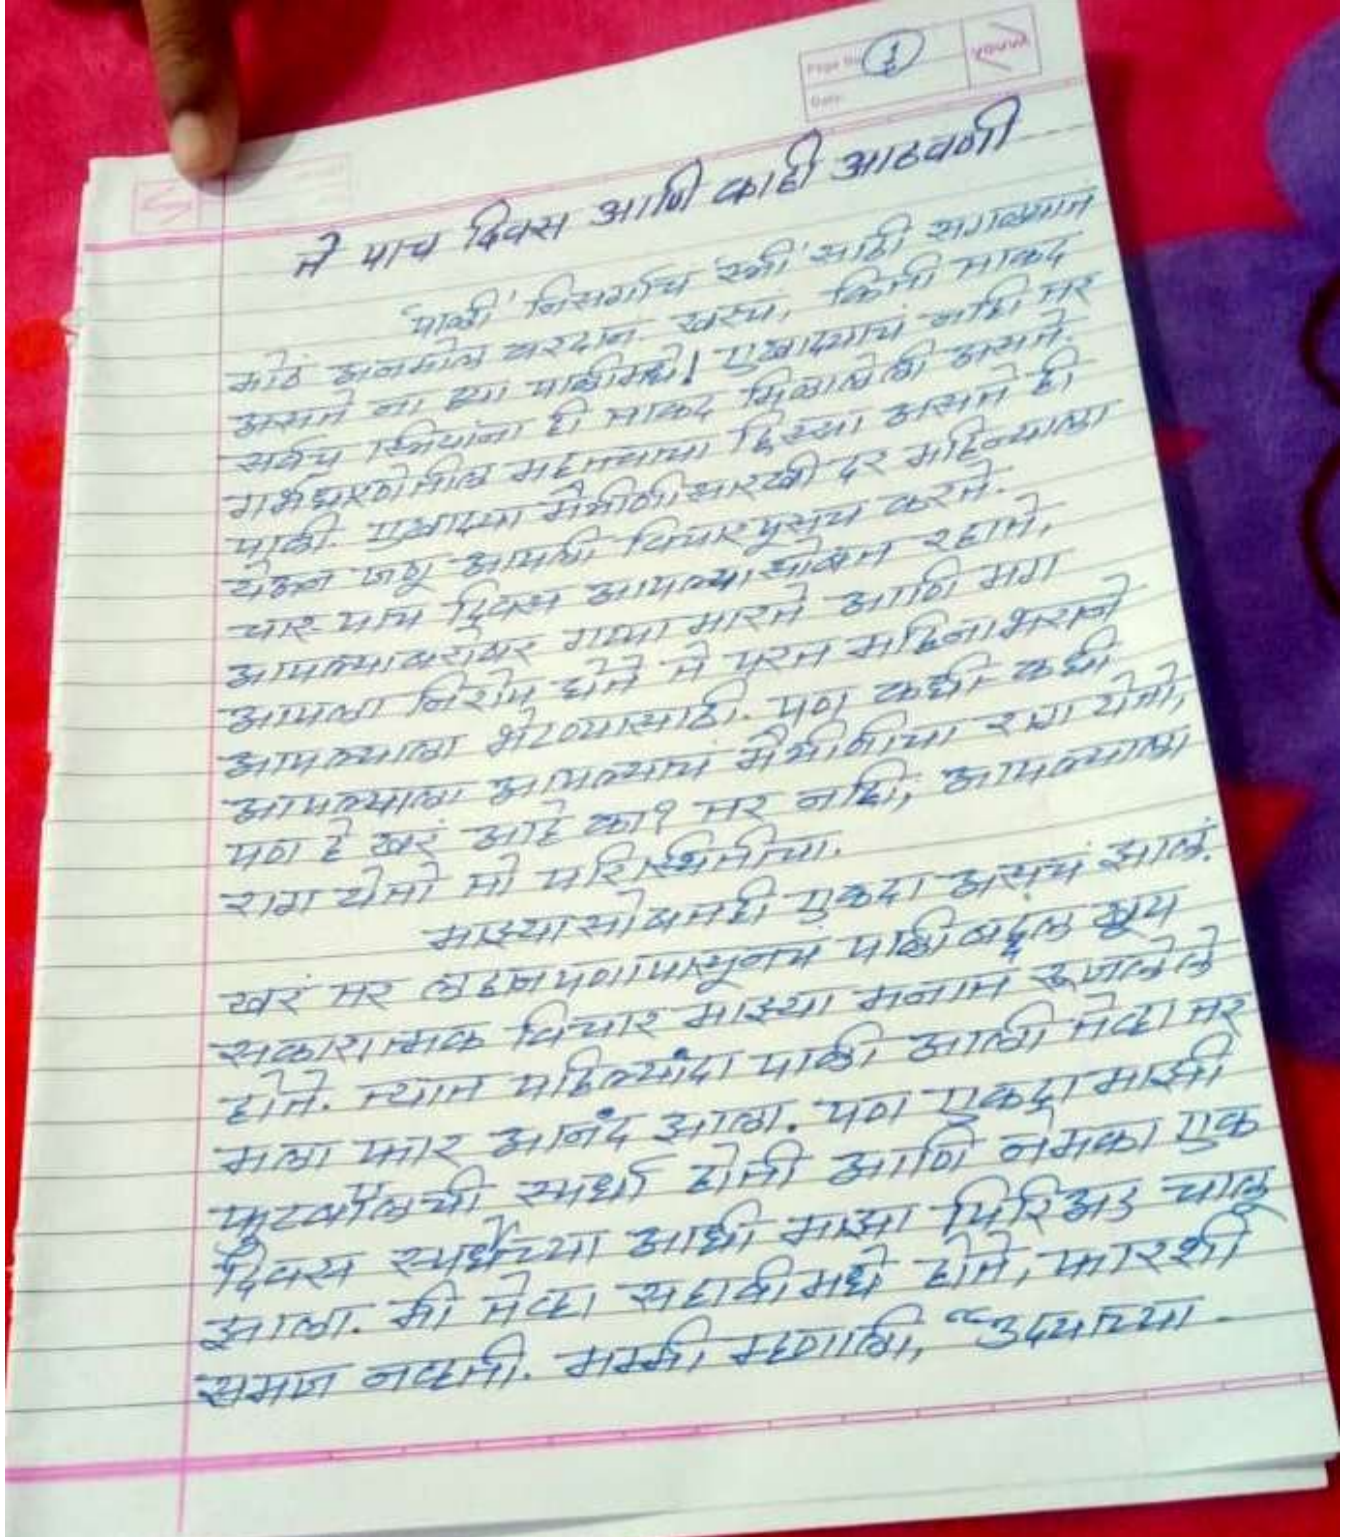 Page No. 1
Date:
youva
ते पाच दिवस आणि काही आठवणी
'पाळी' निसर्गाचं स्त्री साठी सगळ्यात
मोठं अनमोल वरदान. खरंच, किती ताकद
असते ना ह्या पाळीमध्ये! एखाद्याचं नाही तर
सर्वच स्त्रियांना ही ताकद मिळालेली असते.
गर्भधारणेतील महत्वाचा हिस्सा असते ही
पाळी. एखाद्या मैत्रीणीसारखी दर महिन्याला
येऊन जणू आपली विचारपूसच करते.
चार-पाच दिवस आपल्यासोबत रहाते,
आपल्याबरोबर गप्पा मारते आणि मग
आपला निरोप घेते ते परत महिनाभराने
आपल्याला भेटण्यासाठी. पण कधी-कधी
आपल्याला आपल्याच मैत्रीणीचा राग येतो,
पण हे खरं आहे का? तर नाही, आपल्याला
राग येतो तो परिस्थितीचा.
माझ्यासोबतही एकदा असचं झालं.
खरं तर लहानपणापासूनच पाळीबद्दल खूप
सकारात्मक विचार माझ्या मनात रूजलेले
होते. त्यात पहिल्यांदा पाळी आली तेव्हा तर
मला फार आनंद झाला. पण एकदा माझी
फुटबॉलची स्पर्धा होती आणि नेमका एक
दिवस स्पर्धेच्या आधी माझा पिरिअड चालू
झाला. मी तेव्हा सहावीमध्ये होते, फारशी
समज नव्हती. मम्मी म्हणाली, "उद्याच्या